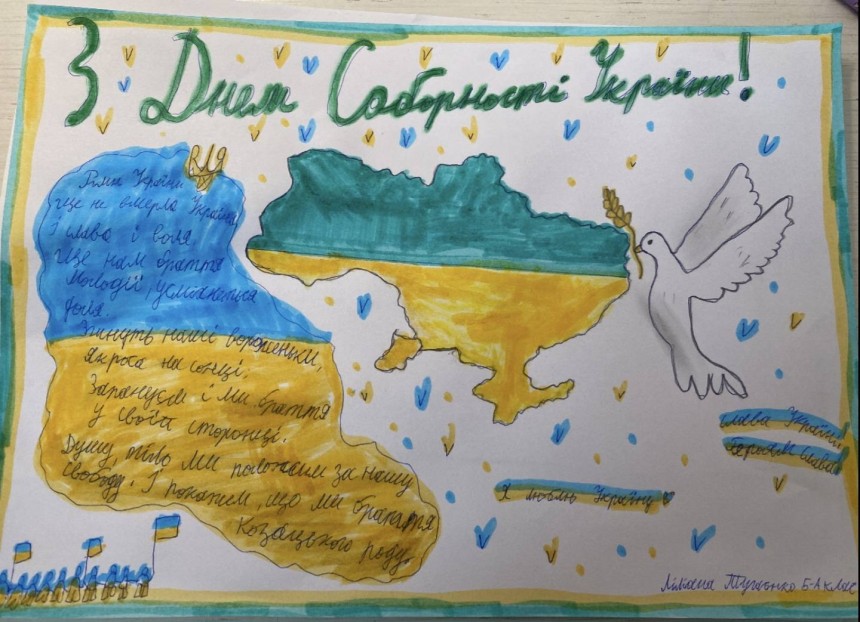 З Днем Соборності України!
Гімн України
Ще не вмерла України
І слава і воля
Ще нам браття
Молодії, усміхнеться
доля.
Згинуть наші вороженьки,
Як роса на сонці.
Запануєм і ми браття
У своїй сторонці.
Душу, тіло ми положим за нашу
свободу. І покажем, що ми браття
Козацького роду.
Я люблю Україну
Слава Україні
Героям Слава
5-А клас